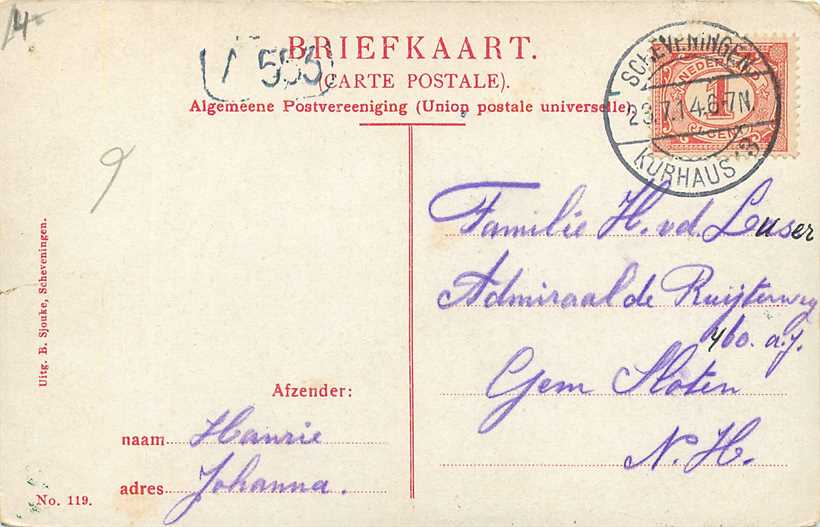 4-
V 553
BRIEFKAART.
(CARTE POSTALE).
Algemeene Postvereeniging (Union postale universelle)
SCHEVENINGEN
23.7.14.6-7N
KURHAUS 3
NEDERLAND
1
CENT
9
Familie H. v.d. Luser
Admiraal de Ruijterweg
460. a.j.
Gem Sloten
N. H.
Uitg. B. Sjouke, Scheveningen.
Afzender:
naam Hanrie
adres Johanna.
No. 119.